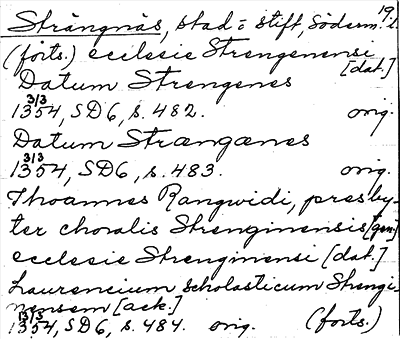 19.
Strängnäs, stad o. stift, Söderm. l.
(forts.) ecclesie Strengenensi [dat.]
Datum Strengenes
3/3
1354, SD6, s. 482. orig.
Datum Strængænes
3/3
1354, SD6, s. 483. orig.
Thoannes Rangwidi, presby-
ter choralis Strenginensis [gen]
ecclesie Strenginensi [dat.]
Laurencium scholasticum Strengi-
nensem [ack.]
13/3
1354, SD6, s. 484. orig. (forts.)